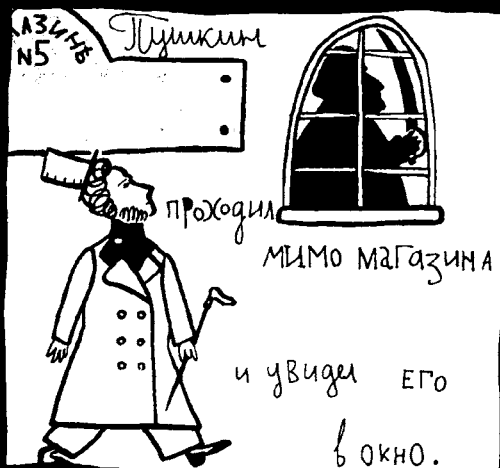 АЗИНЪ
№5
Пушкин
проходил
мимо магазина
и увидел его
в окно.